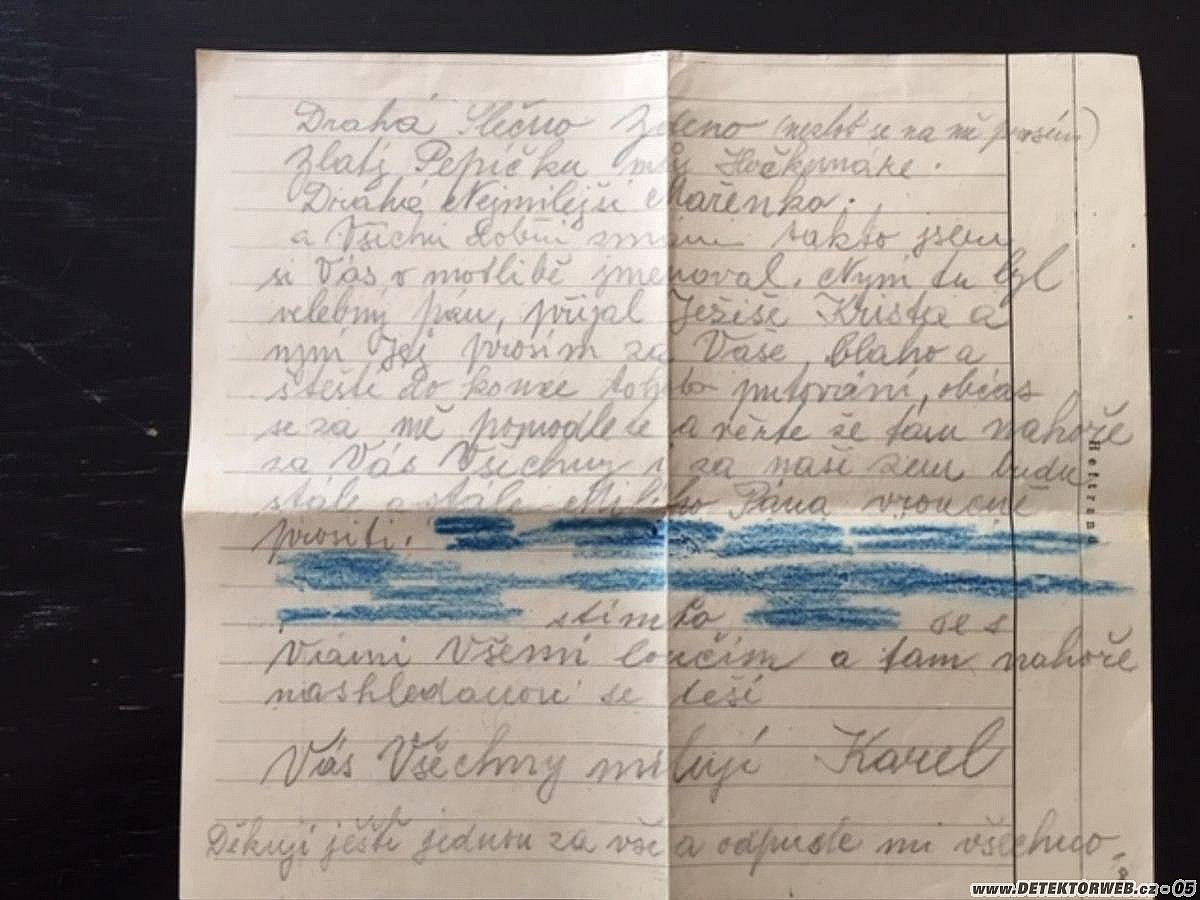 Drahá Slečno Zdeno (nezlob se na mě prosím)
Zlatý Pepíčku můj
Drahá Nejmilejší Mařenko.
a Všichni dobří známí takto jsem
si Vás v motlibě jmenoval. Nyní tu byl
velebný pán, přijal Ježíše Krista a
nyní Jej prosím za Vaše blaho a
štěstí do konce tohoto putování, občas
se za mě pomodlete a věřte že tam nahoře
za Vás Všechny i za naši zem budu
stále a stále Milého Pána vroucně
prositi.
stímto se s
Vámi Všemi loučím a tam nahoře
nashledanou se těší
Vás Všechny milují Karel
Děkuji ještě jednou za vše a odpuste mi všechno
Heftrand
www.DETEKTORWEB.cz
05